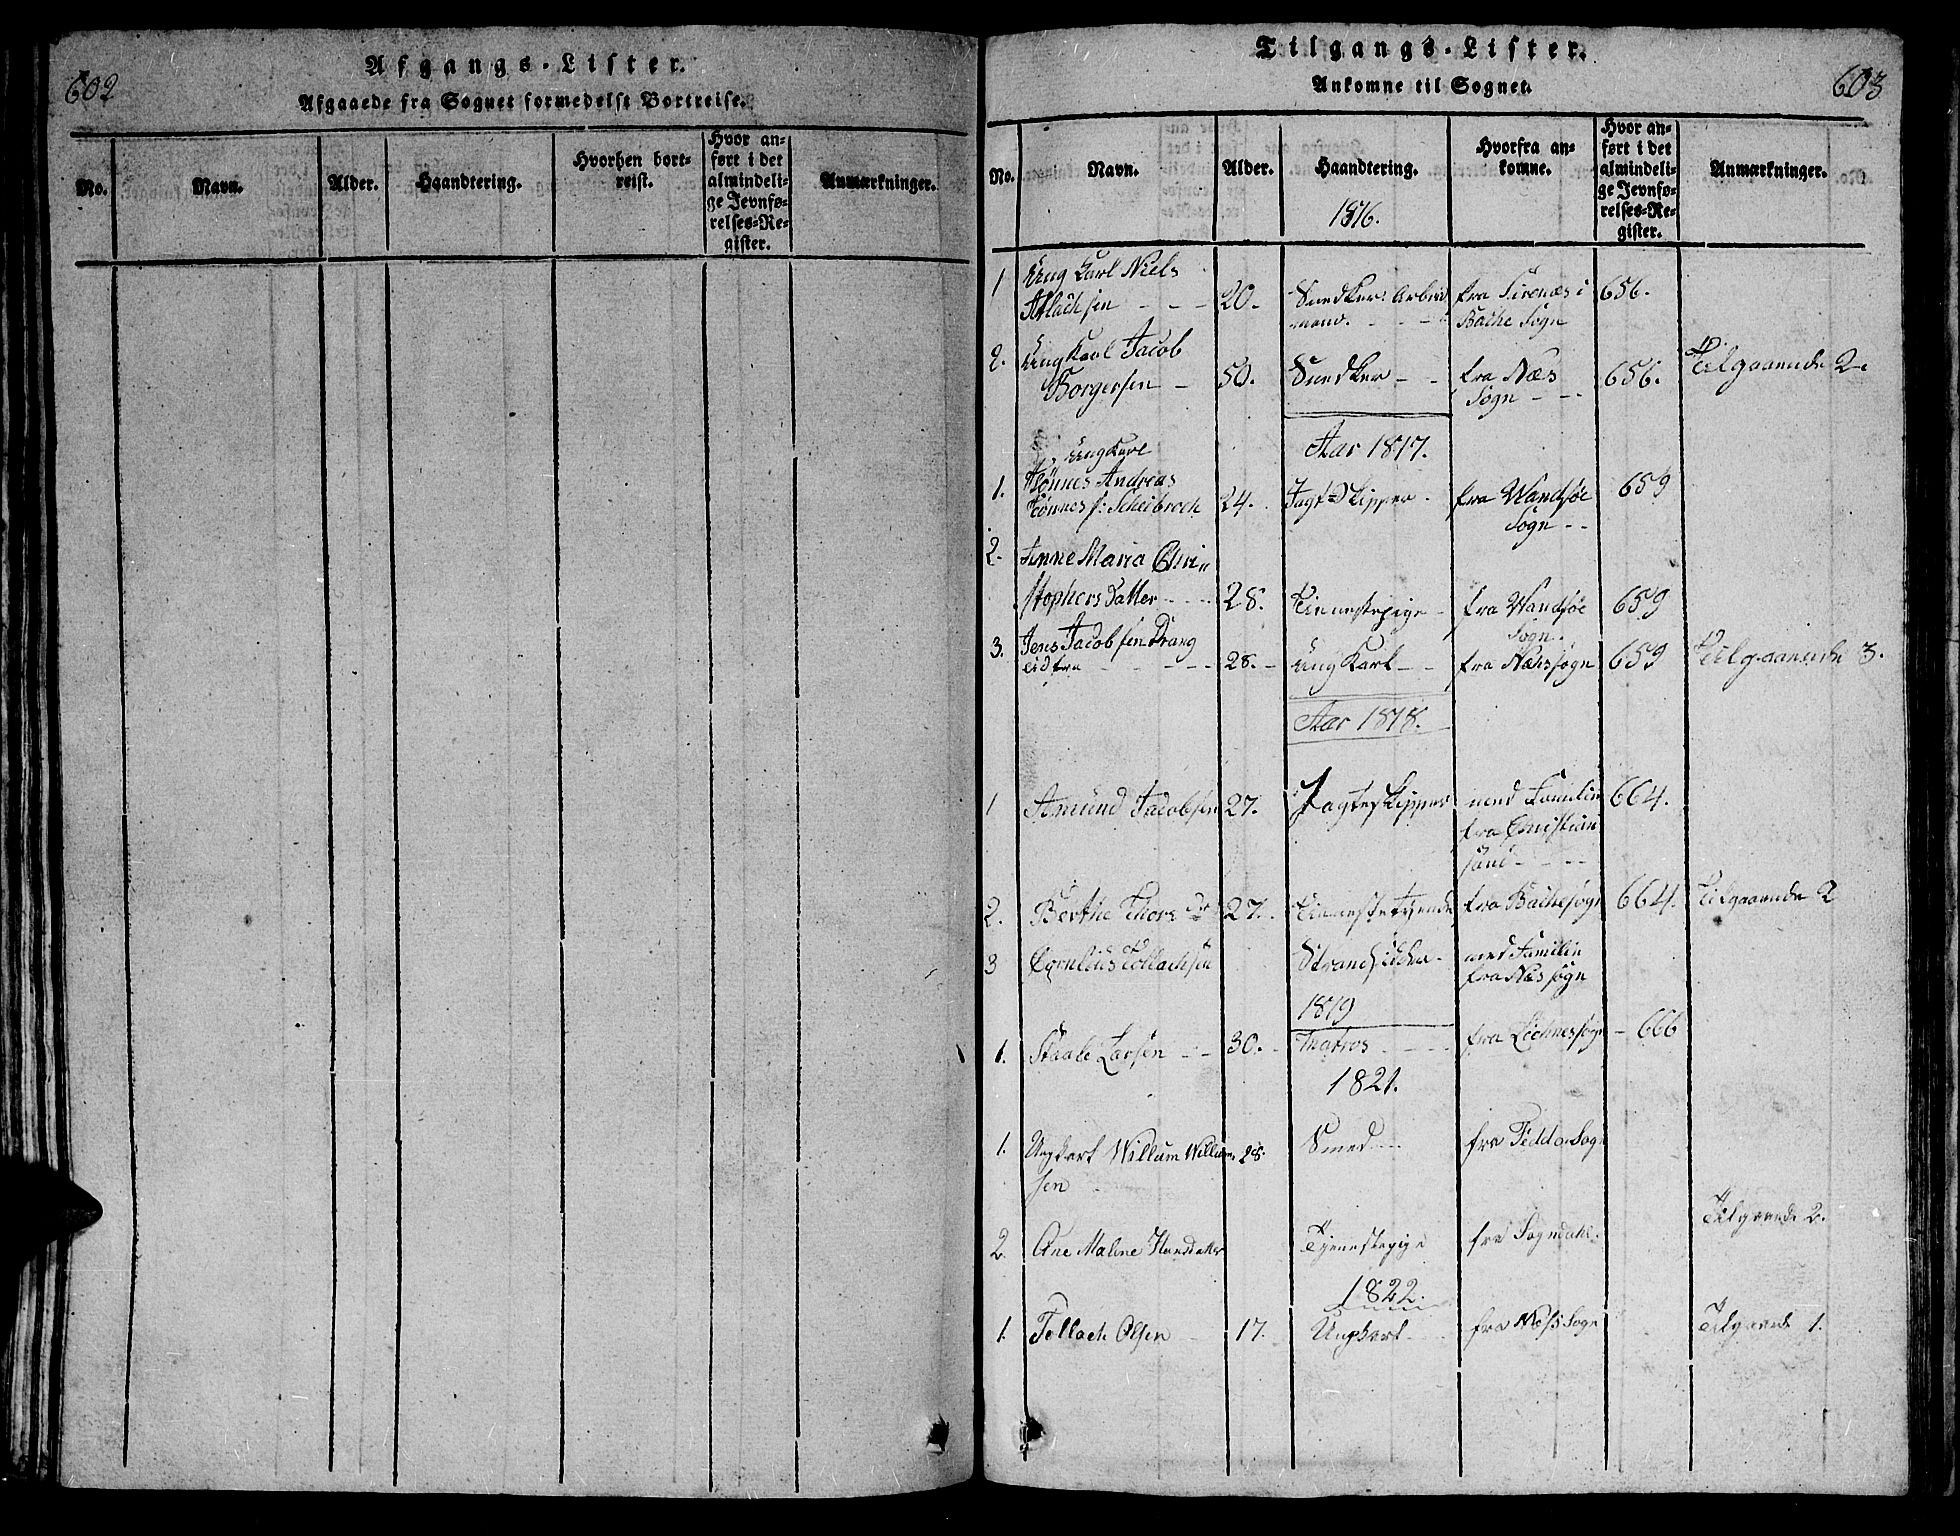 602
Afgangs-Lister.
Afgaaede fra Sognet formedelst Bortreise.
No.
Navn.
Alder.
Haandtering.
Hvorhen bort-
reist.
Hvor an-
ført i det
almindeli-
ge Jevnfø-
relses-Re-
gister.
Anmærkninger.
Tilgangs-Lister.
603
Ankomne til Sognet.
No.
Navn.
Alder.
Haandtering.
1816.
Hvorfra an-
komne.
Hvor an-
ført i det
almindeli-
ge Jevnfø-
relses-Re-
gister.
Anmærkninger.
1 Ung Karl Niels
Atlachsen - - - 20. Snedker: Arbeid fra Sirenæs i 656.
mand. - - Bache Sogn
2. Ung Karl Jacob
Borgersen - 50. Snedker - - fra Næs 656. Tilgaaende 2.
Sogn - - -
Aar 1817.
Ung Karl
1. Tönnes Andreas
Tönnes s: Scheibroch 24. Jagt Skipper - fra Wandsøe 659
Sogn - -
2. Anne Maria Chri
stophers Datter - - - 28. Tienestepige - fra Wandsøe 659
Sogn.
3. Jens Jacobsen Drang
eid fra - - - - 28. - Ung Karl - - fra Næssogn 659 Tilgaaende 3.
Aar 1818.
1 Amund Jacobsen 27. Jagteskipper med Familie 664.
fra Christian
sand - - -
2. Berthe Thors Dr 27. Tienestetyende fra Bachesogn 664. Tilgaaende 2
3 Cornelius Tollachsen Strandsidder - med Familie
fra Næssogn
1819
1. Staale Larsen - - 30. - Matros - - - fra Liknessogn - 666
1821.
1. Ungkarl Willum Willum 28. Smed - - fra Fedde Sogn
sen -
Tilgaaende 2.
2. Ane Malene Hansdatter Tjenestepige fra Sogndahl.
1822.
1. Tollach Olsen - 17. Ungkarl - fra Næs Sogn Tilgaaende 1.